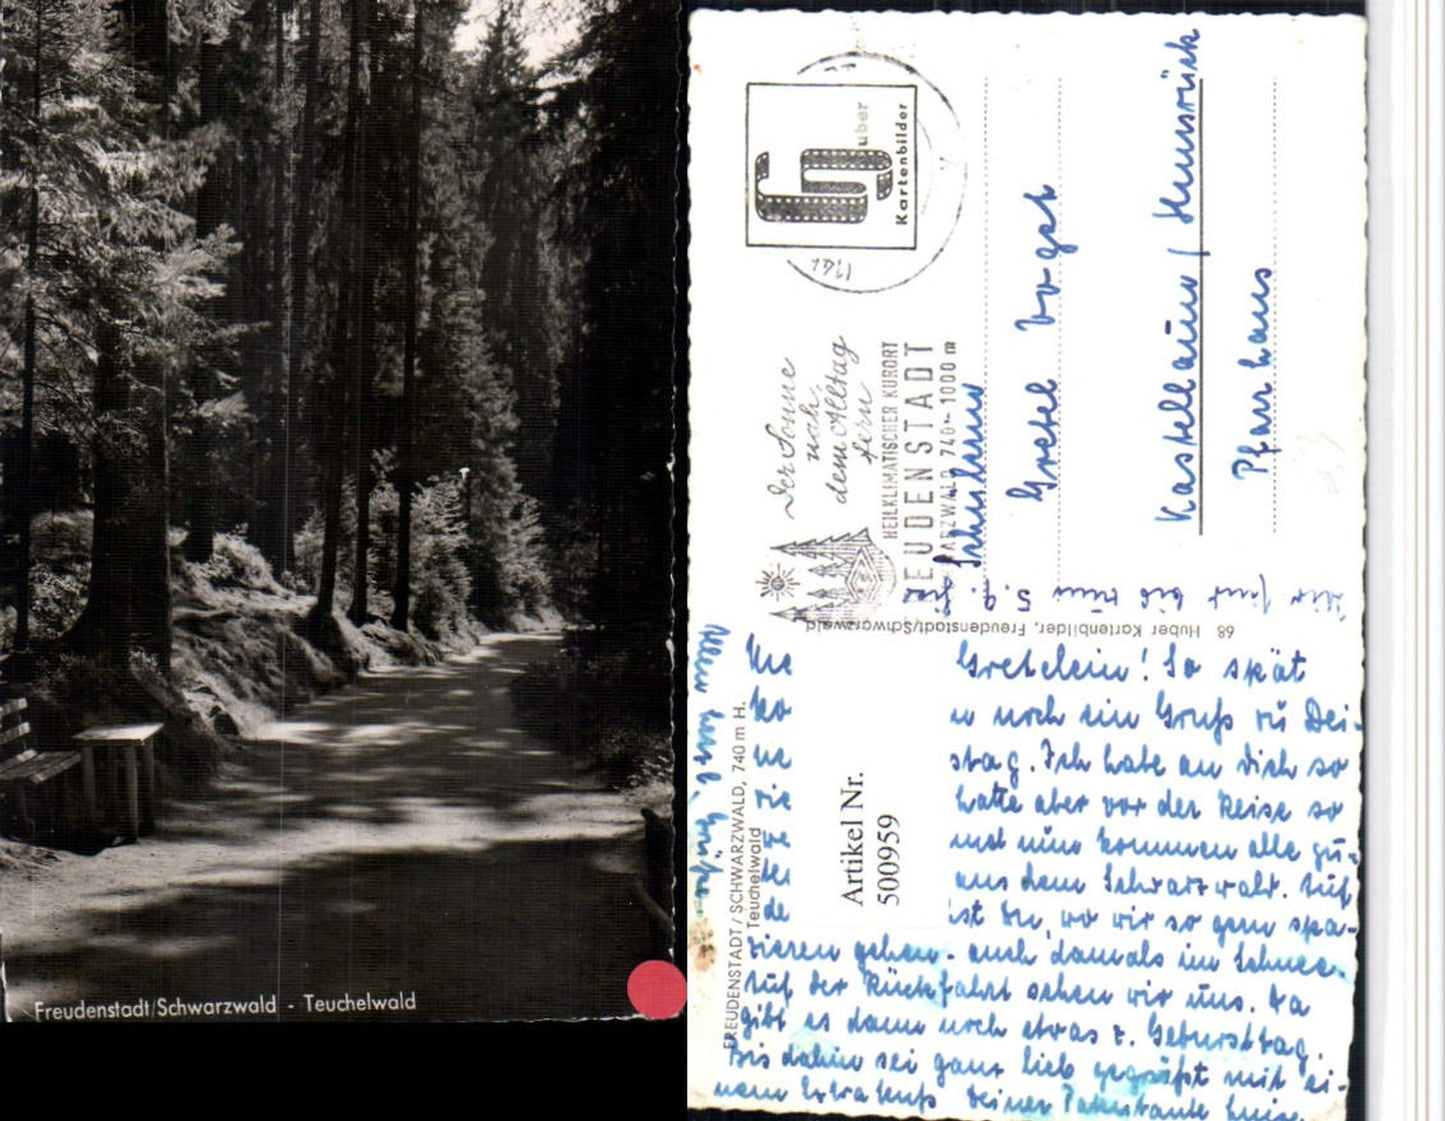 Freudenstadt/Schwarzwald - Teuchelwald
Huber
Kartenbilder
Der Sonne
nah,
dem Alltag
fern
HEILKLIMATISCHER KURORT
FREUDENSTADT
SCHWARZWALD 740-1000 m
Schülerin
Gretel Vogt
Kastellaun / Hunsrück
Pfarrhaus
Wir sind bis zum 5. 9. hier
68 Huber Kartenbilder, Freudenstadt/Schwarzwald
FREUDENSTADT / SCHWARZWALD, 740 m H.
Teuchelwald
Allen herzl. Grüße
Artikel Nr.
500959
Me Gretelein! So spät
ko n noch ein Gruß zu Dei-
ne stag. Ich habe an Dich so
hatte aber vor der Reise so
und nun kommen alle gu-
aus dem Schwarzwald. Auf
de ist der, wo wir so gern spa-
zieren gehen - auch damals im Schnee.
Auf der Rückfahrt sehen wir uns. Da
gibt es dann noch etwas z. Geburtstag.
Bis dahin sei ganz lieb gegrüßt mit ei-
nem Extrakuß Deiner Patentante Luise